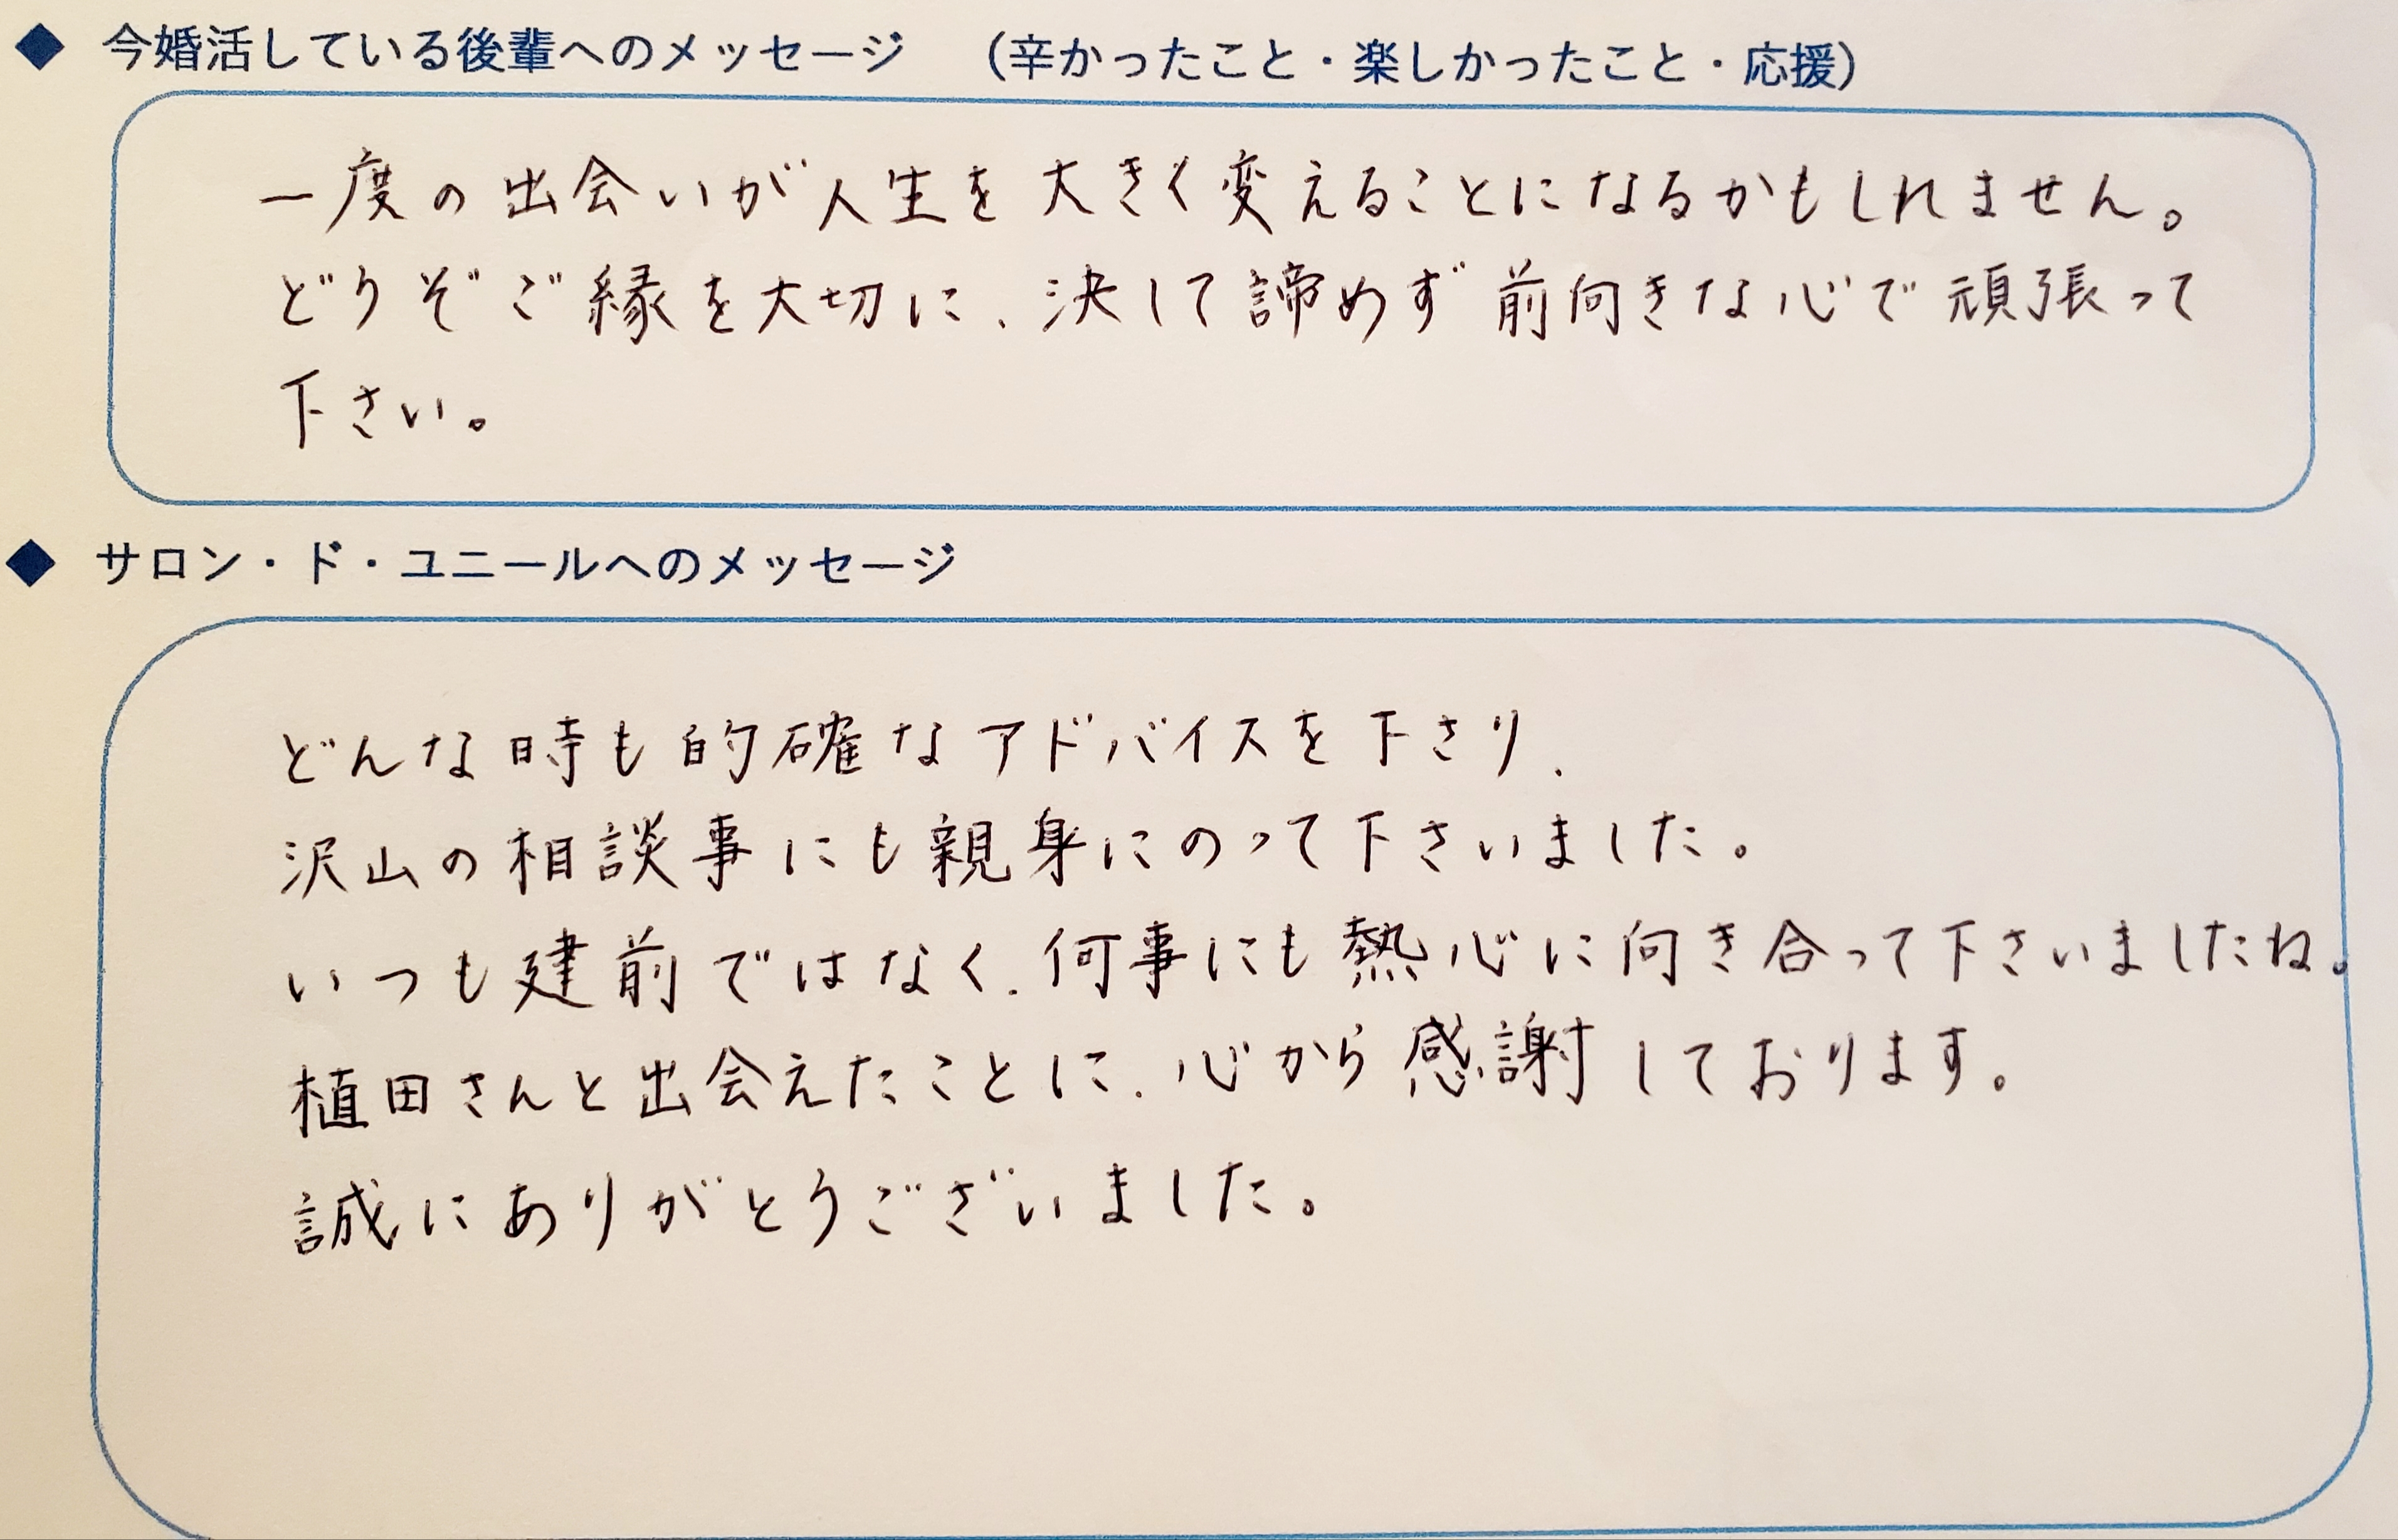 ◆ 今婚活している後輩へのメッセージ （辛かったこと・楽しかったこと・応援）
一度の出会いが人生を大きく変えることになるかもしれません。
どうぞご縁を大切に、決して諦めず前向きな心で頑張って
下さい。
◆ サロン・ド・ユニールへのメッセージ
どんな時も的確なアドバイスを下さり、
沢山の相談事にも親身にのって下さいました。
いつも建前ではなく、何事にも熱心に向き合って下さいましたね。
植田さんと出会えたことに、心から感謝しております。
誠にありがとうございました。